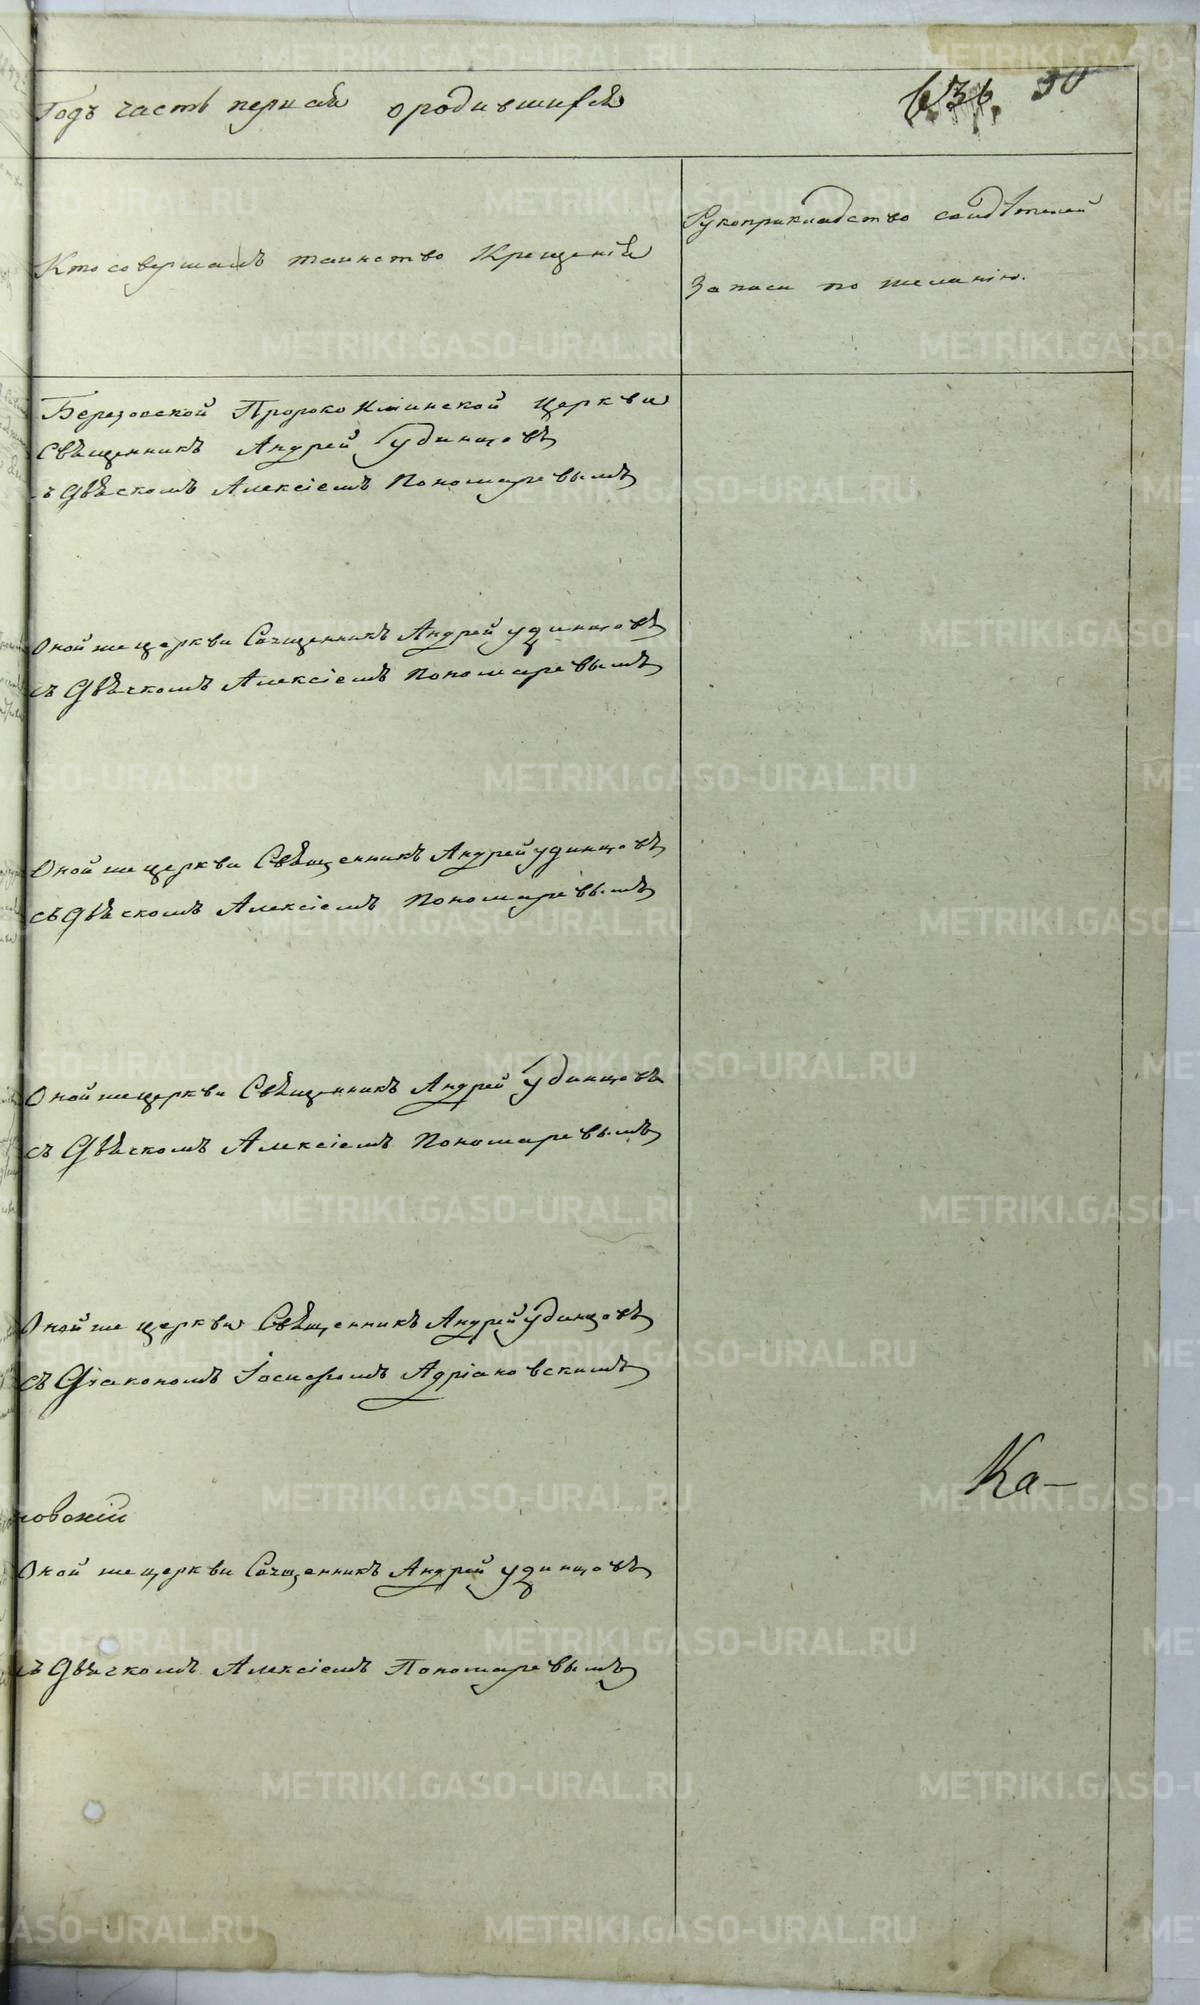 Годъ часть первая о родившихся
636. 30
Кто совершалъ таинство Крещенія
Рукоприкладство свидѣтелей
записи по желанію.
Березовской Пророко Илiинской церкви
Священникъ Андрей Удинцовъ
съ Дьячкомъ Алексіемъ Пономаревымъ
Оной же церкви Священникъ Андрей Удинцовъ
съ Дьячкомъ Алексіемъ Пономаревымъ
Оной же церкви Священникъ Андрей Удинцовъ
съ Дьячкомъ Алексіемъ Пономаревымъ
Оной же церкви Священникъ Андрей Удинцовъ
съ Дьячкомъ Алексіемъ Пономаревымъ
Оной же церкви Священникъ Андрей Удинцовъ
съ Діакономъ Іосифомъ Адріановскимъ
Ка-
Оной же церкви Священникъ Андрей Удинцовъ
съ Дьячкомъ Алексіемъ Пономаревымъ
METRIKI.GASO-URAL.RU